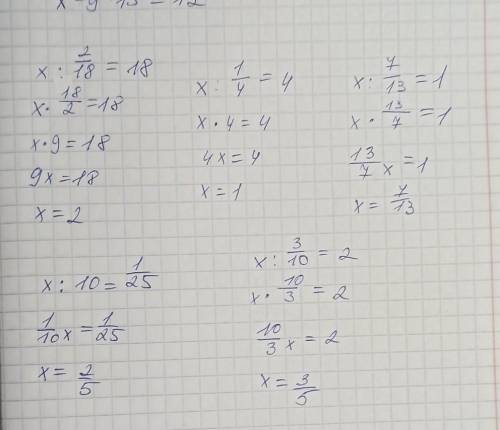 x : 2/18 = 18
x · 18/2 = 18
x · 9 = 18
9x = 18
x = 2
x : 1/4 = 4
x · 4 = 4
4x = 4
x = 1
x : 7/13 = 1
x · 13/7 = 1
13/7 x = 1
x = 7/13
x : 10 = 1/25
1/10 x = 1/25
x = 2/5
x : 3/10 = 2
x · 10/3 = 2
10/3 x = 2
x = 3/5